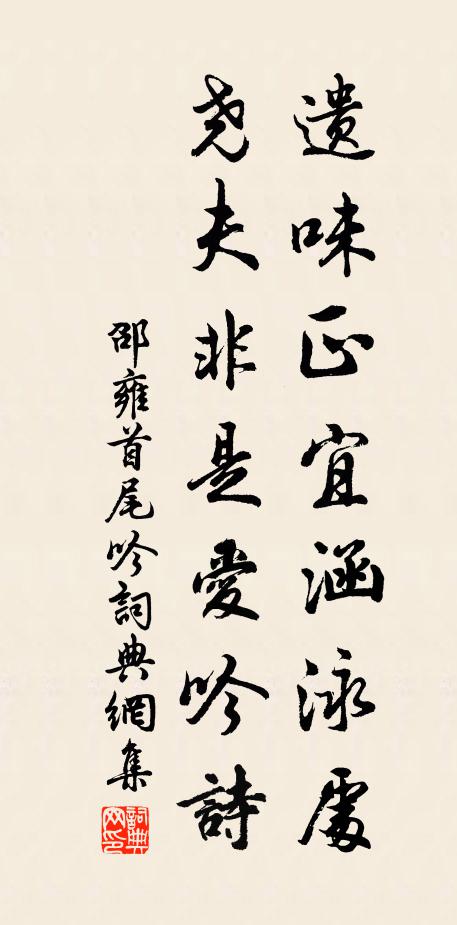 遺味正宜涵泳處
堯夫非是愛吟詩
邵雍首尾吟詞典網集
詞典網印